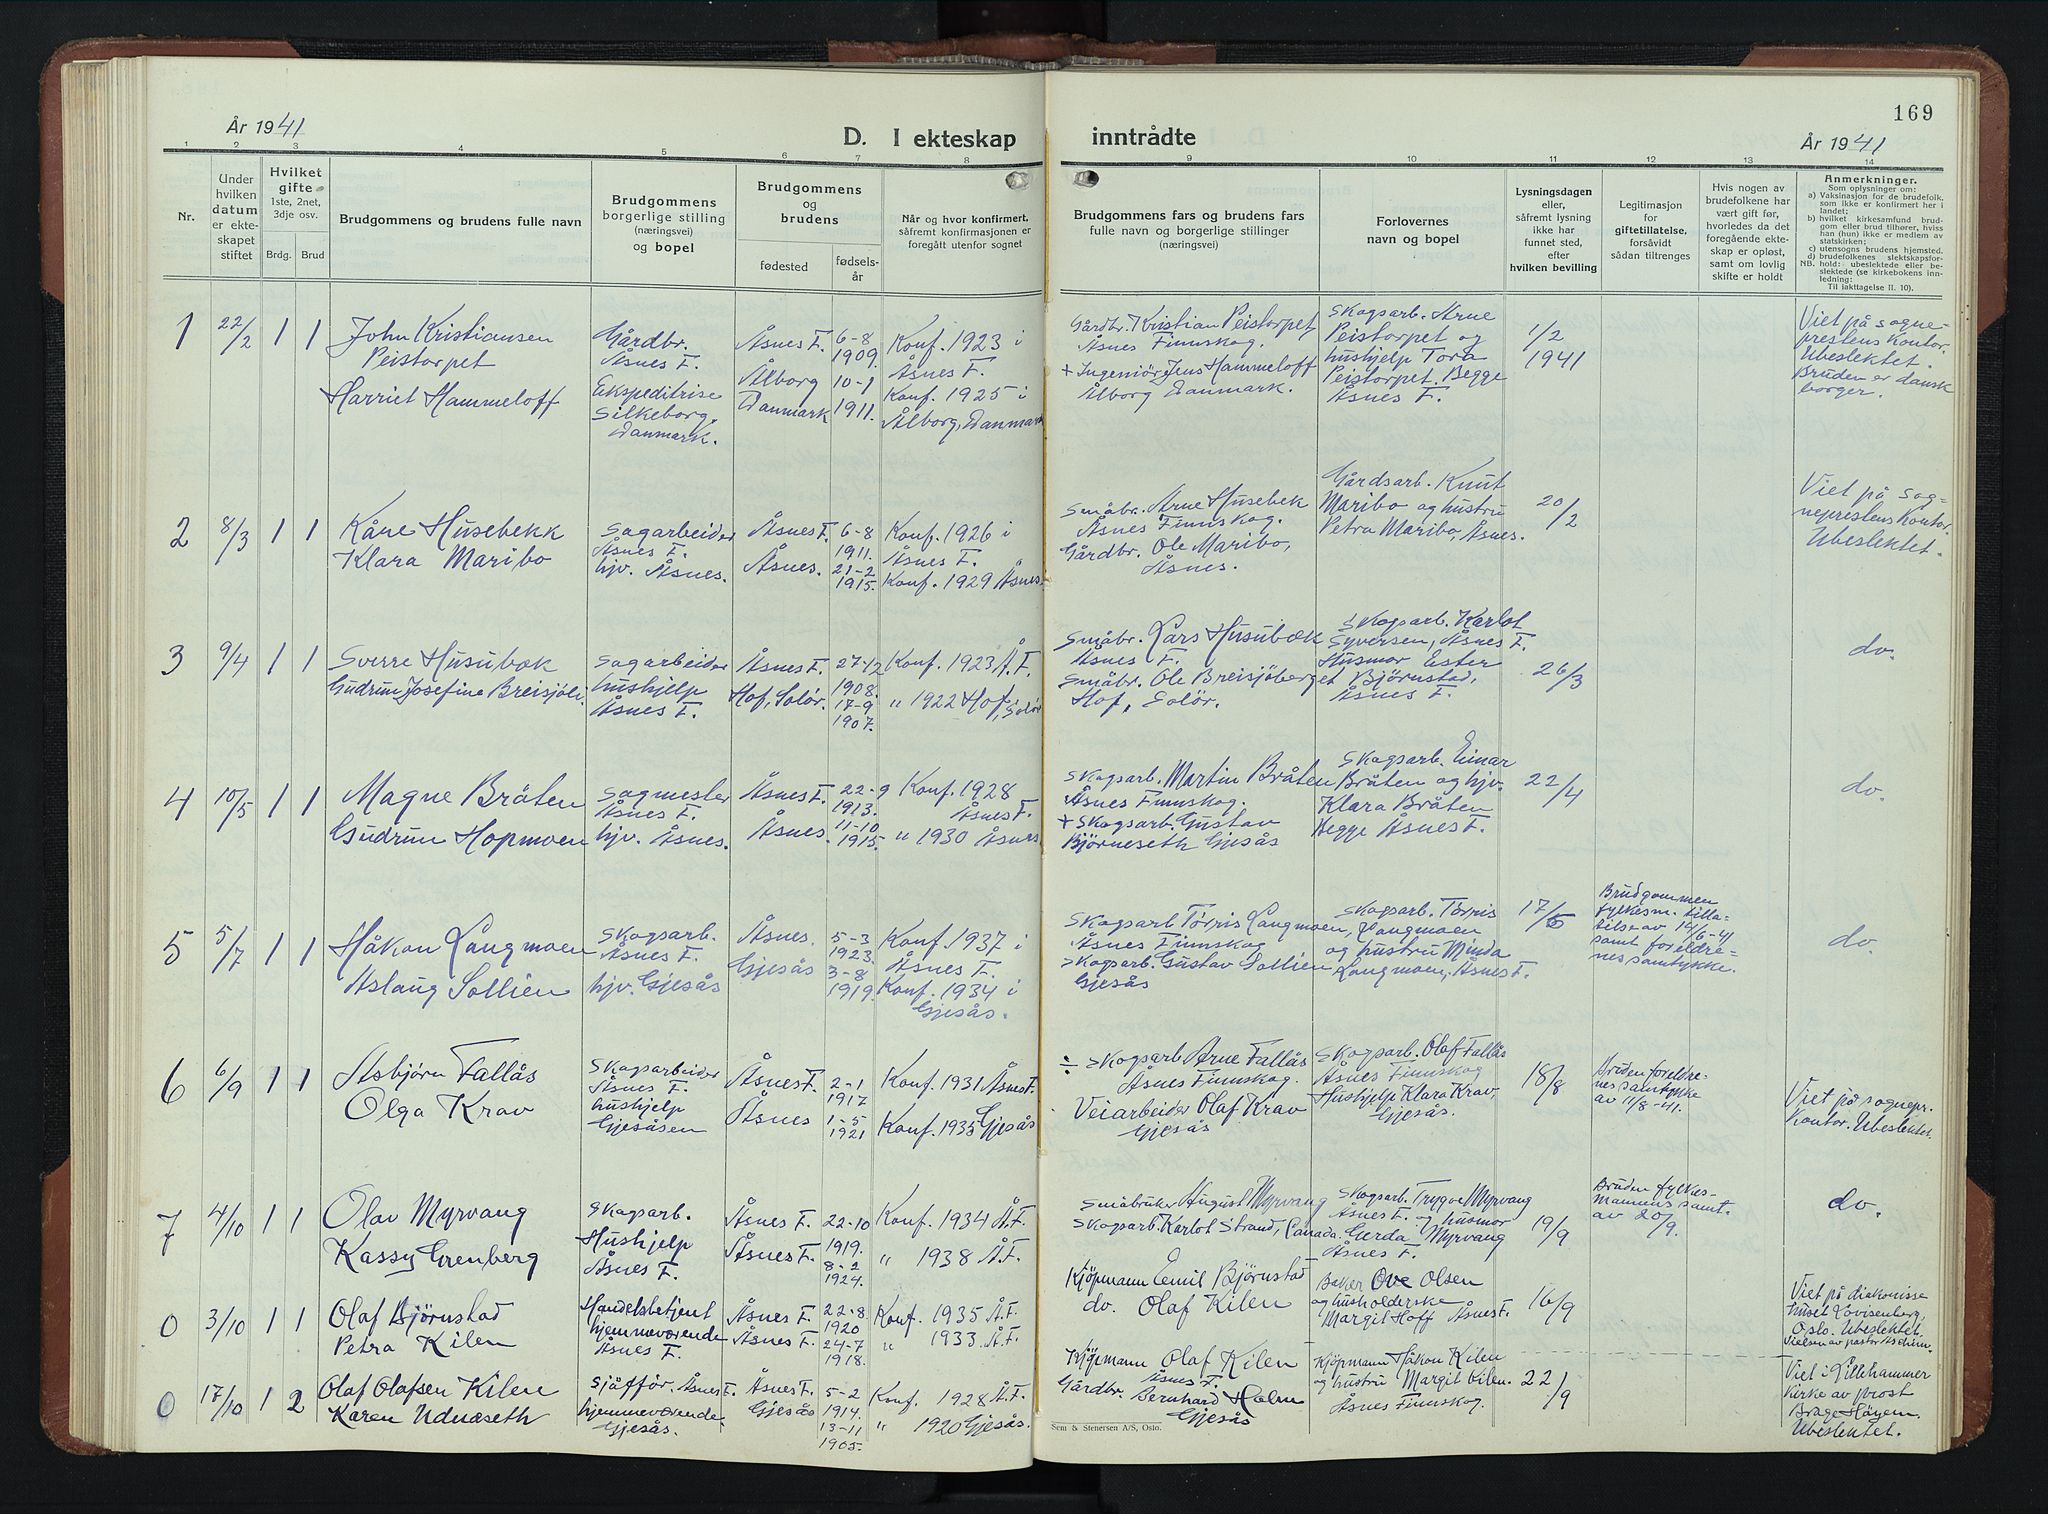 169
År 1941
D. I ekteskap
inntrådte
År 1941
1 2 3 4 5 6 7 8 9 10 11 12 13 14
Nr.
Under
hvilken
datum
er ekte-
skapet
stiftet
Hvilket
gifte
1ste, 2net,
3dje osv.
Brdg. Brud
Brudgommens og brudens fulle navn
Brudgommens
borgerlige stilling
(næringsvei)
og bopel
Brudgommens
og
brudens
fødested
fødsels-
år
Når og hvor konfirmert,
såfremt konfirmasjonen er
foregått utenfor sognet
Brudgommens fars og brudens fars
fulle navn og borgerlige stillinger
(næringsvei)
Forlovernes
navn og bopel
Lysningsdagen
eller,
såfremt lysning
ikke har
funnet sted,
efter
hvilken bevilling
Legitimasjon
for
giftetillatelse,
forsåvidt
sådan tiltrenges
Hvis nogen av
brudefolkene har
vært gift før,
hvorledes da det
foregående ekte-
skap er opløst,
samt om lovlig
skifte er holdt
Anmerkninger.
Som oplysninger om:
a) Vaksinasjon for de brudefolk,
som ikke er konfirmert her i
landet;
b) hvilket kirkesamfund brud-
gom eller brud tilhører, hviss
han (hun) ikke er medlem av
statskirken;
c) utensogns brudens hjemsted.
d) brudefolkenes slektskapsfor-
NB. hold: ubeslektede eller be-
slektede (se kirkebokens inn-
ledning:
Til iakttagelse II. 10).
1
22/2
1 1
John Kristiansen
Peistorpet
Harriet Hammeloff
Gårdbr.
Åsnes F.
Ekspeditrise
Silkeborg,
Danmark.
Åsnes F.
Ålborg
Danmark
6-8
1909.
10-1
1911.
Konf. 1923 i
Åsnes F.
Konf. 1925 i
Ålborg, Danmark
Gårdbr. Kristian Peistorpet,
Åsnes Finnskog.
+ Ingeniör Jens Hammeloff
Ålborg Danmark.
Skogsarb. Arne
Peistorpet og
hushjelp Tora
Peistorpet. Begge
Åsnes F.
1/2
1941
Viet på sogne-
prestens Kontor.
Ubeslektet.
Bruden er dansk
borger.
2
8/3
1 1
Kåre Husebekk
Klara Maribo
Sagarbeider
Åsnes F.
hjv. Åsnes.
Åsnes F.
Åsnes.
6-8
1911.
21-2
1915.
Konf. 1926 i
Åsnes F.
Konf. 1929 Åsnes.
Småbr. Arne Husebek
Åsnes Finnskog.
Gårdbr. Ole Maribo,
Åsnes.
Gårdsarb. Knut
Maribo og hustru
Petra Maribo, Åsnes.
20/2
Viet på sog-
neprestens Kontor.
Ubeslektet.
3
9/4
1 1
Sverre Husubæk
Gudrun Josefine Breisjöli.
Sagarbeider
hushjelp
Åsnes F.
Åsnes F.
Hof, Solör.
27-12
1908.
17-9
1907.
Konf. 1923 Å.F.
" 1922 Hof, Solör
Småbr. Lars Husubæk
Åsnes F.
Småbr. Ole Breisjöberget
Hof, Solör.
Skogsarb. Karlot
Syversen, Åsnes F.
Husmor Ester
Björnstad,
Åsnes F.
26/3
do.
4
10/5
1 1
Magne Bråten
Gudrun Hopmoen
Sagmester
Åsnes F.
hjv. Åsnes.
Åsnes F.
Åsnes.
22-9
1913.
11-10
1915.
Konf. 1928
Åsnes F.
" 1930 Åsnes
Skogsarb. Martin Bråten
Åsnes Finnskog.
+ Skogsarb. Gustav
Björneseth Gjesås
Skogsarb. Einar
Bråten og hjv.
Klara Bråten
Begge Åsnes F.
22/4
do.
5
5/7
1 1
Håkon Langmoen
Aslaug Sollien
Skogsarb.
Åsnes F.
hjv. Gjesås
Åsnes.
Gjesås
5-3
1923.
3-8
1919.
Konf. 1937 i
Åsnes F.
Konf. 1934 i
Gjesås.
Skogsarb Törris Langmoen,
Åsnes Finnskog
Skogsarb. Gustav Sollien
Gjesås
Skogsarb. Törris
Langmoen
og hustru Minda
Langmoen, Åsnes F.
17/6
Brudgommen
fylkesm. tilla-
telse av 14/6-41
samt foreldre-
nes samtykke.
do.
6
6/9
1 1
Asbjörn Fallås
Olga Krav
Skogsarbeider
Åsnes F.
hushjelp
Gjesåsen
Åsnes F.
Åsnes
2-1
1917
1-5
1921
Konf. 1931 Åsnes F.
Konf. 1935 Gjesås
÷ Skogsarb Arne Fallås
Åsnes Finnskog.
Veiarbeider Olaf Krav
Gjesås
Skogsarb. Olaf Fallås
Åsnes Finnskog
Hushjelp Klara Krav,
Gjesås.
18/8
Bruden foreldre-
nes samtykke
av 11/8-41.
Viet på sognepr.
Kontor. Ubeslektet.
7
4/10
1 1
Olav Myrvang
Kassy Grenberg
Skogsarb.
Hushjelp
Åsnes F.
Åsnes F.
Åsnes F.
22-10
1919.
8-2
1924.
Konf. 1934 Å.F.
" 1938 Å.F.
Småbruker August Myrvang
Skogsarb. Karlot Strand, Canada.
Skogsarb. Trygve Myrvang
Åsnes F. og husmor
Gerda Myrvang
Åsnes F.
19/9
Bruden fylkes-
mannens samt.
av 20/9.
do.
0
3/10
1 1
Olaf Björnstad
Petra Kilen
Handelsbetjent
hjemmeværende
Åsnes F.
Åsnes F.
Åsnes F.
22-8
1920
24-7
1918.
Konf. 1935 Å.F.
" 1933 Å.F.
Kjöpmann Emil Björnstad
do. Olaf Kilen
Baker Ove Olsen
og husholderske
Margit Hoff Åsnes F.
16/9
Viet på diakonisse
huset Lovisenberg,
Oslo. Ubeslektet.
Vielsen av pastor Aschim.
0
17/10
1 2
Olaf Olafsen Kilen
Karen Udnæseth
Sjåför. Åsnes F.
hjemmeværende
Gjesås.
Åsnes F.
Gjesås
5-2
1914.
13-11
1905.
Konf. 1928 Å.F.
" 1920 Gjesås.
Kjöpmann Olaf Kilen
Åsnes F.
Gårdbr. Bernhard Holm
Gjesås
Kjöpmann Håkon Kilen
og hustru Margit Kilen.
Åsnes Finnskog.
22/9
Viet i Lillehammer
Kirke av prost
Brage Höyem.
Ubeslektet.
Sem & Stenersen A/S, Oslo.